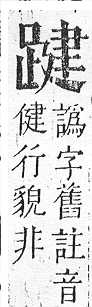 踺
譌字舊註音
健行貌非